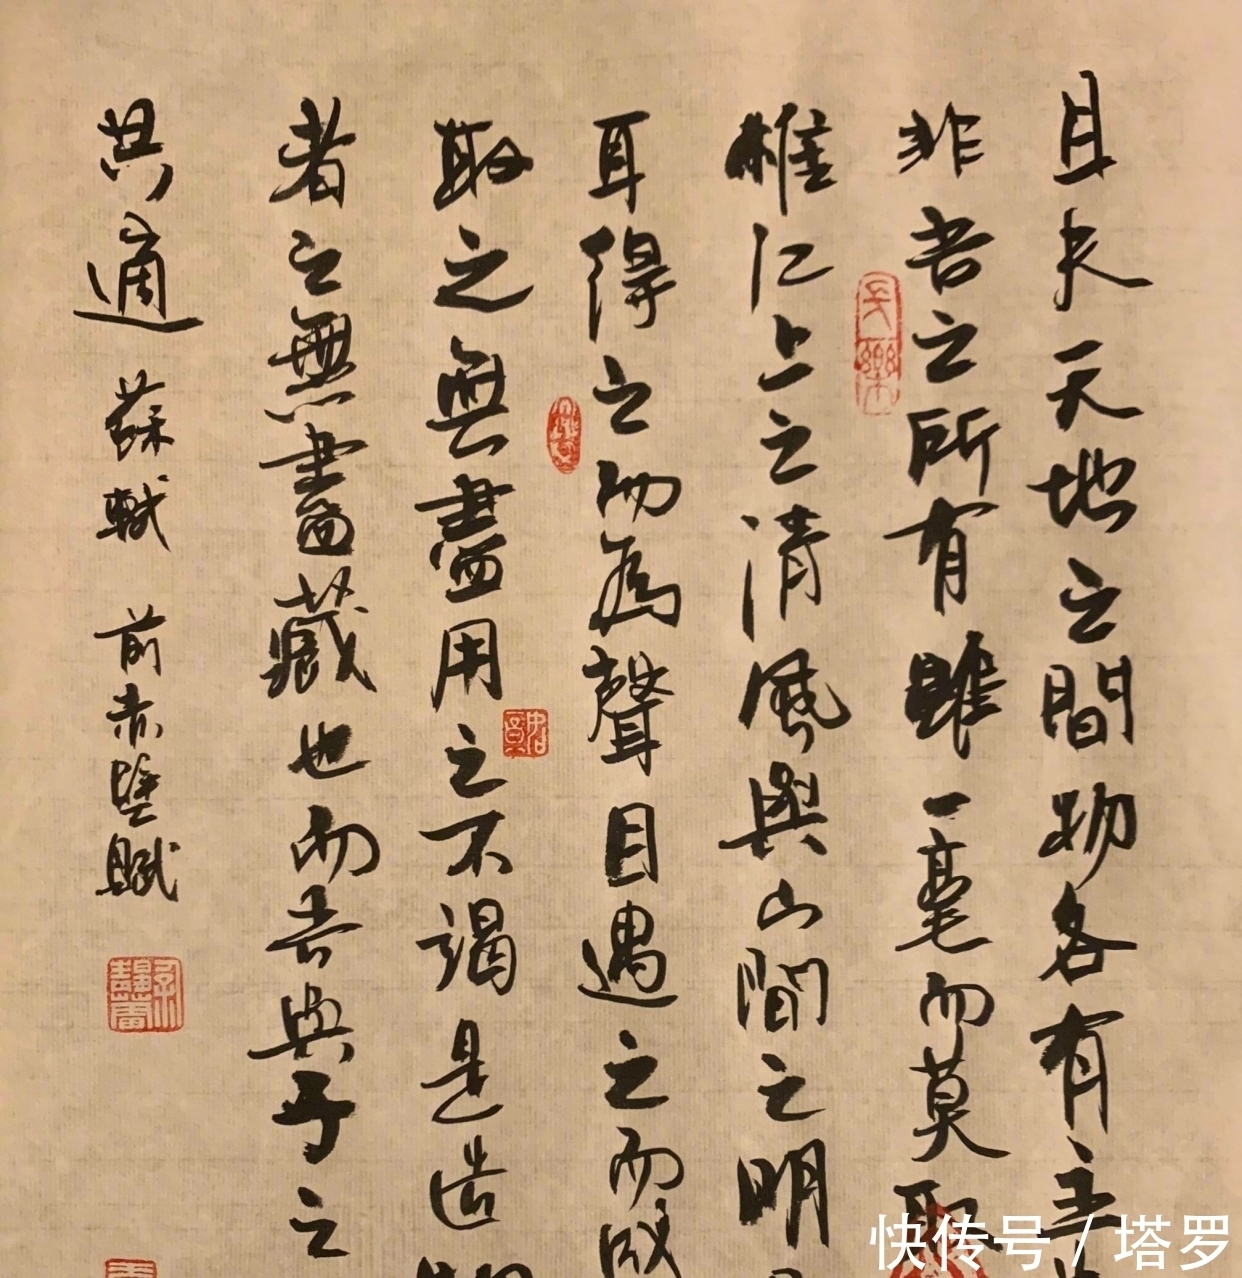 且夫天地之間物各有主
非吾之所有雖一毫而莫取
惟江上之清風與山間之明
耳得之而為聲目遇之而成
取之無盡用之不竭是造物
者之無盡藏也而吾與子之
共適
蘇軾 前赤壁賦
快传号 / 塔罗